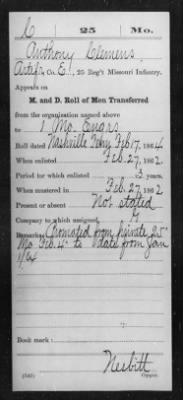 C 25 Mo.
Anthony Clemens
Artif, Co. E, 25 Reg't Missouri Infantry.
Appears on
M. and D. Roll of Men Transferred
from the organization named above
to 1 Mo. Engrs
Roll dated Nashville Tenn Feb 17, 1864
When enlisted Feb. 27, 1862
Period for which enlisted 3 years.
When mustered in Feb. 27, 1862
Present or absent Not stated
Company to which assigned
Remarks: Promoted from private 25"
Mo. Feb. 4" to date from Jan
1/64
Book mark:
Nesbitt
Copyist.